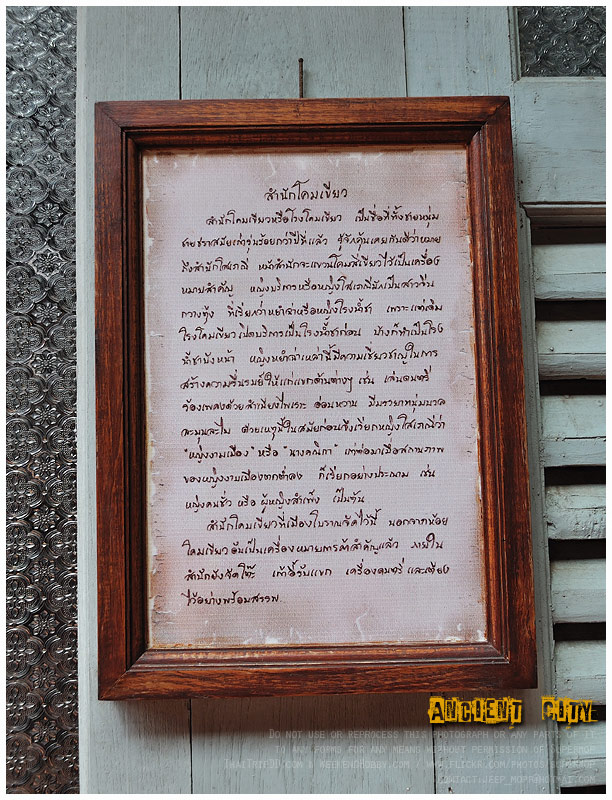 สำนักโคมเขียว
สำนักโคมเขียวหรือโรงโคมเขียว เป็นชื่อที่ทั้งชายหนุ่ม
ชายชราสมัยเก่ารุ่นร้อยกว่าปีที่แล้ว รู้จักคุ้นเคยกันดีว่าหมาย
ถึงสำนักโสเภณี หน้าสำนักจะแขวนโคมสีเขียวไว้เป็นเครื่อง
หมายสำคัญ หญิงบริการหรือหญิงโสเภณีมักเป็นสาวจีน
กวางตุ้ง ที่เรียกว่าหยำฉ่าหรือหญิงโรงน้ำชา เพราะแต่เดิม
โรงโคมเขียวเปิดบริการเป็นโรงน้ำชาก่อน บ้างก็ทำเป็นโรง
น้ำชาบังหน้า หญิงหยำฉ่าเหล่านี้มีความเชี่ยวชาญในการ
สร้างความรื่นรมย์ให้แก่แขกด้านต่างๆ เช่น เล่นดนตรี
ร้องเพลงด้วยสำเนียงไพเราะ อ่อนหวาน มีมรรยาทนุ่มนวล
ละมุนละไม ด้วยเหตุนี้ในสมัยก่อนจึงเรียกหญิงโสเภณีว่า
"หญิงงามเมือง" หรือ "นางคณิกา" แต่ต่อมาเมื่อสถานภาพ
ของหญิงงามเมืองตกต่ำลง ก็เรียกอย่างประณาม เช่น
หญิงคนชั่ว หรือ ผู้หญิงสำเพ็ง เป็นต้น
สำนักโคมเขียวที่เมืองโบราณจัดไว้นี้ นอกจากห้อย
โคมเขียวอันเป็นเครื่องหมายการค้าสำคัญแล้ว ภายใน
สำนักยังจัดโต๊ะ เก้าอี้รับแขก เครื่องดนตรี และเตียง
ไว้อย่างพร้อมสรรพ.
ANCIENT CITY
DO NOT USE OR REPROCESS THIS PHOTOGRAPH OR ANY PART OF IT
TO ANY FORMS FOR ANY MEANS WITHOUT PERMISSION OF